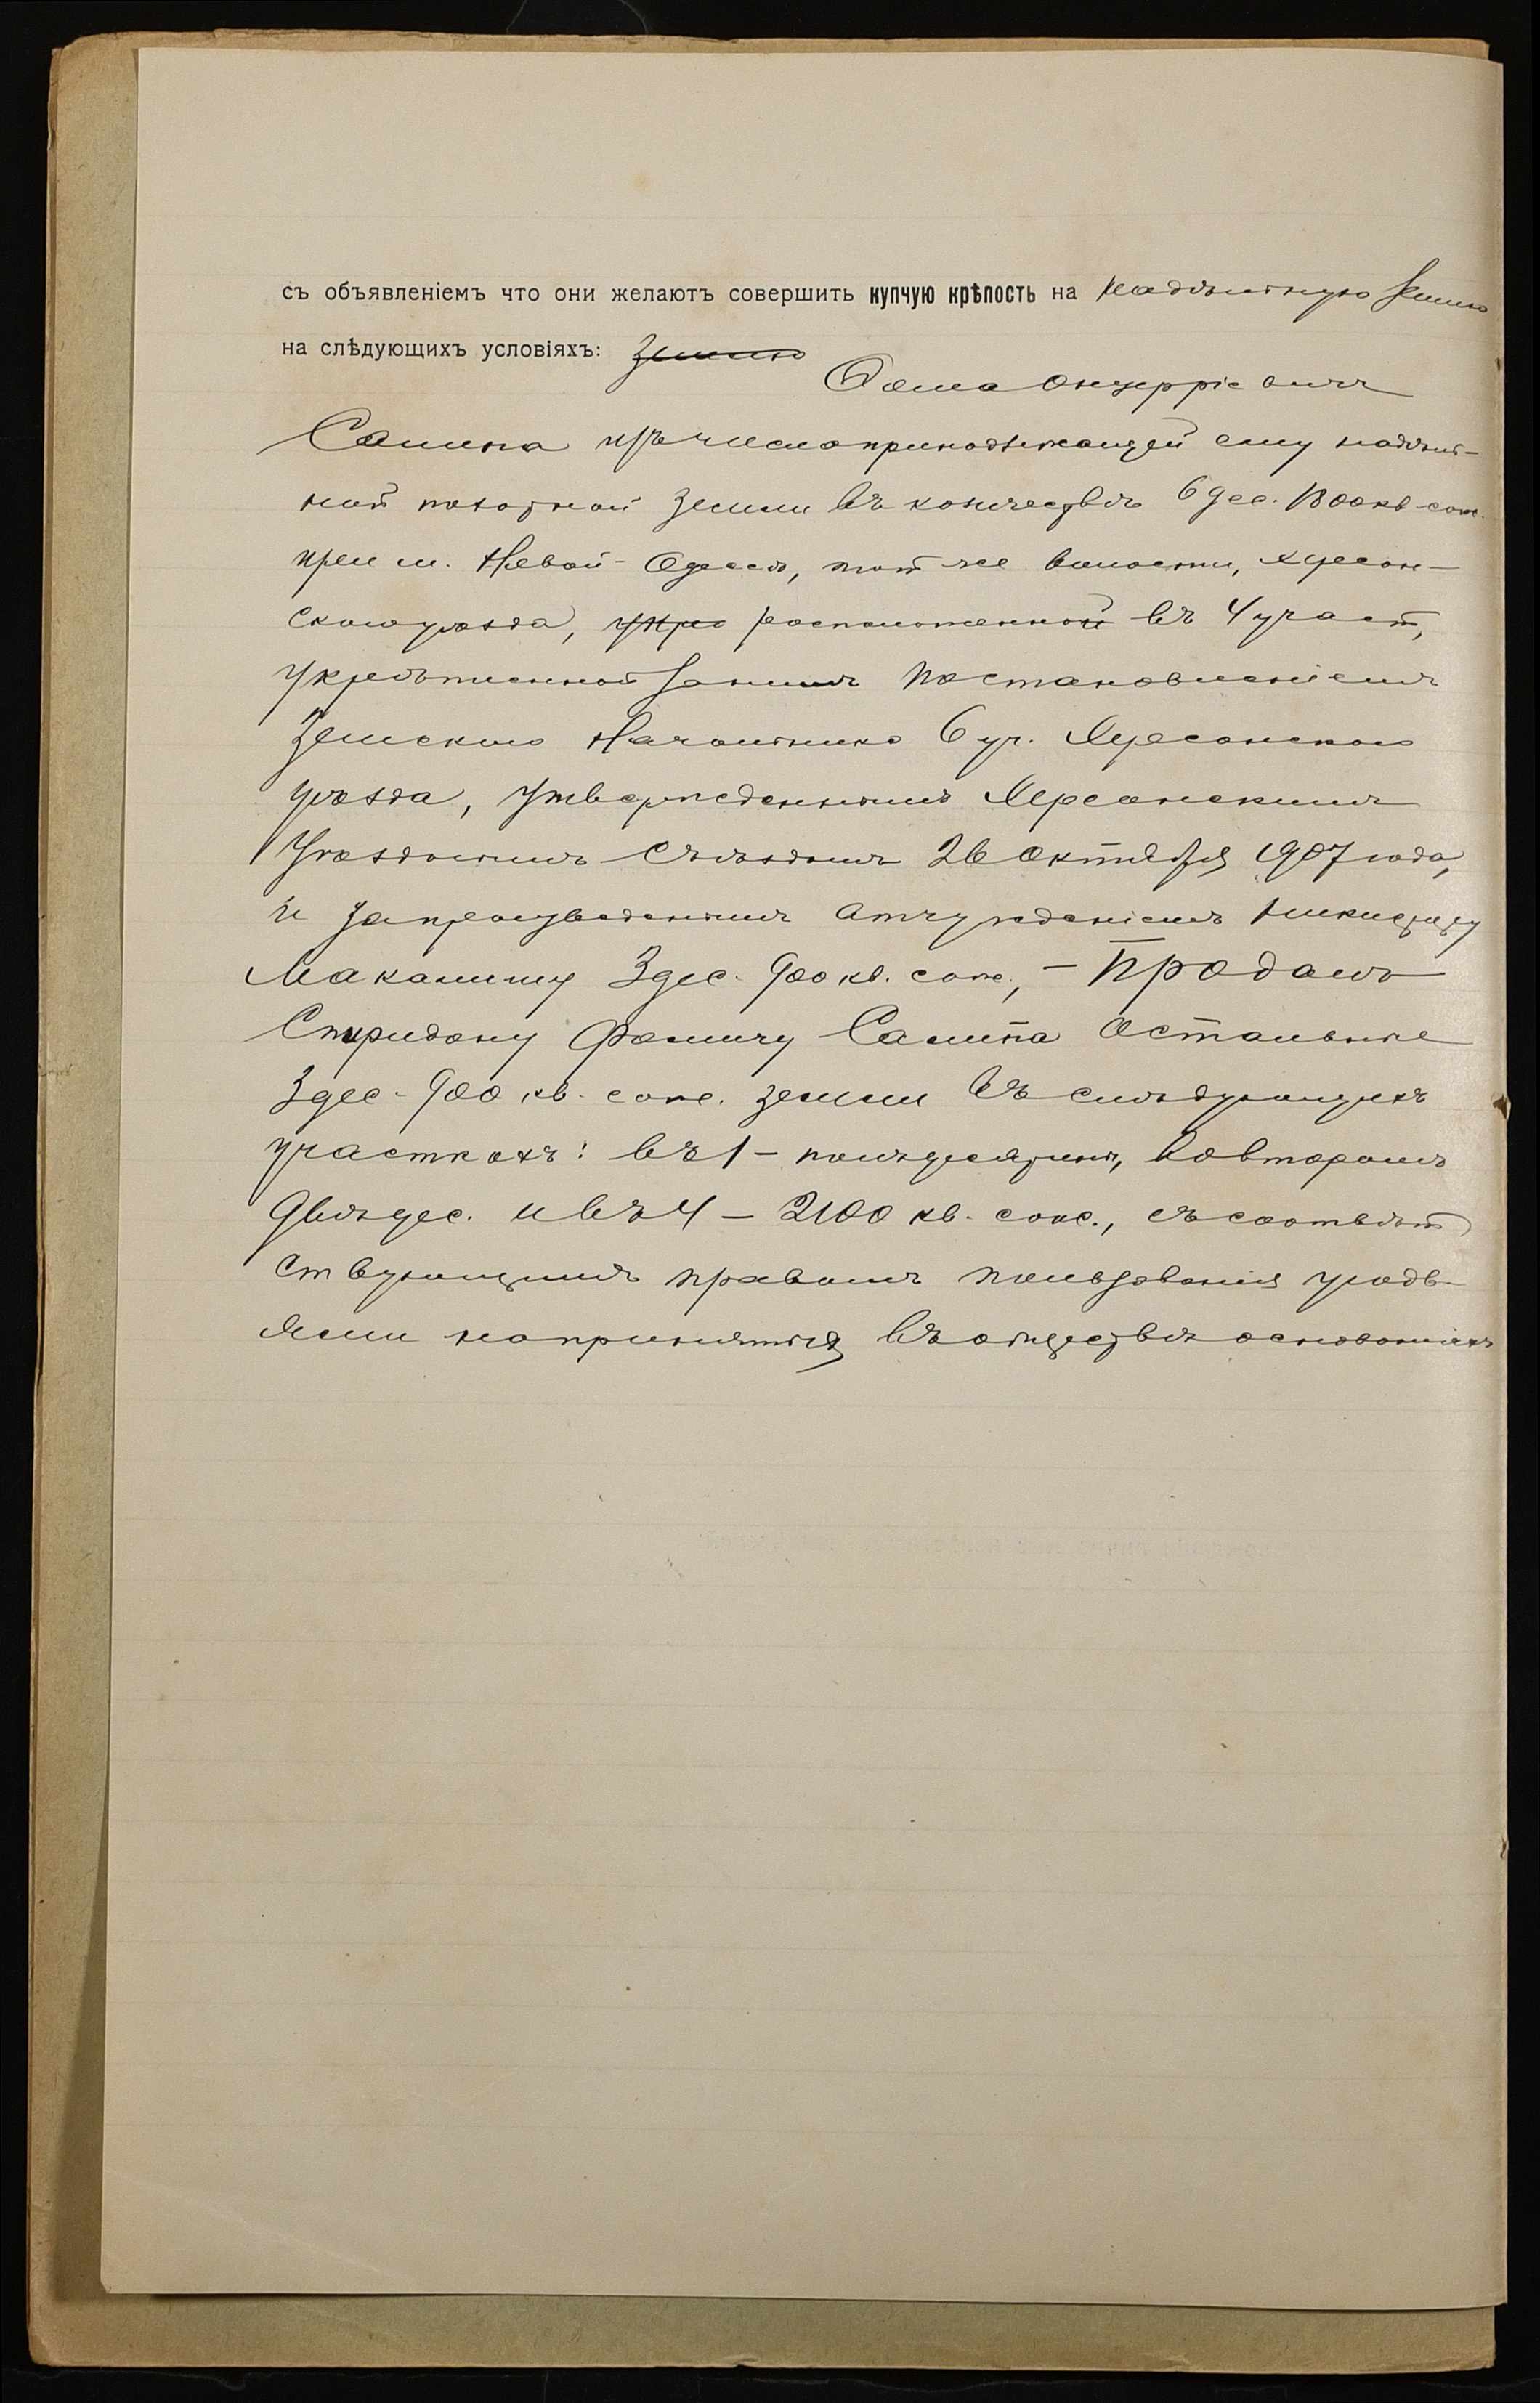 съ объявленіемъ что они желаютъ совершить купчую крѣпость на надѣльную землю
на слѣдующихъ условіяхъ: землю
Фома Онуфріевичъ
Салипа изъ числа принадлежащей ему надѣль-
ной полотной земли въ количествѣ 6 дес. 1800 кв. саж.
при м. Новой-Одессѣ, той же волости, Херсон-
скаго уѣзда, укре расположенной въ 4 участ,
укрѣпленной за нимъ постановленіемъ
Земскаго Начальника 6 уч. Херсонскаго
уѣзда, утвержденнымъ Херсонскимъ
Уѣзднымъ Съѣздомъ 26 октября 1907 года,
и за произведеннымъ отчужденіемъ
3 дес. 900 кв. саж., – Продалъ
Спиридону Фомичу Салипа остальные
3 дес. 900 кв. саж. земли въ слѣдующихъ
участкахъ: въ 1 – полъ десятины, во второмъ
двѣ дес. и въ 4 – 2100 кв. саж., съ соотвѣт
ствующимъ правомъ пользованія угодь-
ями на принятыхъ въ обществѣ основаніяхъ